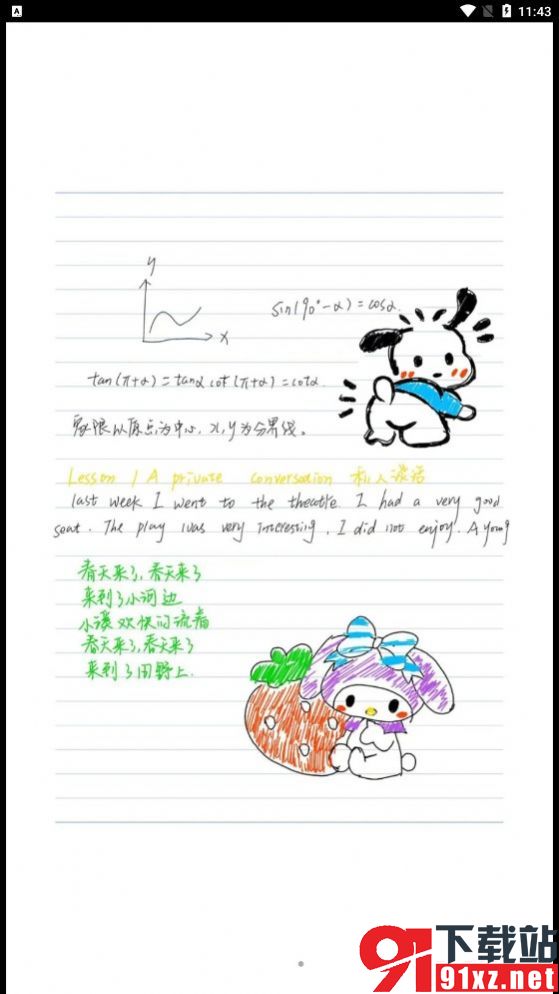 11:43
y
sin(90°-α)=cosα.
x
tan(π+α)=tanα cot(π+α)=cotα.
象限以原点为中心，x,y为分界线。
Lesson 1 A private conversation 私人谈话
last week I went to the theatle. I had a very good
seat. The play was very interesting. I did not enjoy. A young
春天来了，春天来了
来到了小河边
小溪欢快的流着
春天来了，春天来了
来到了田野上.
91下载站
91xz.net